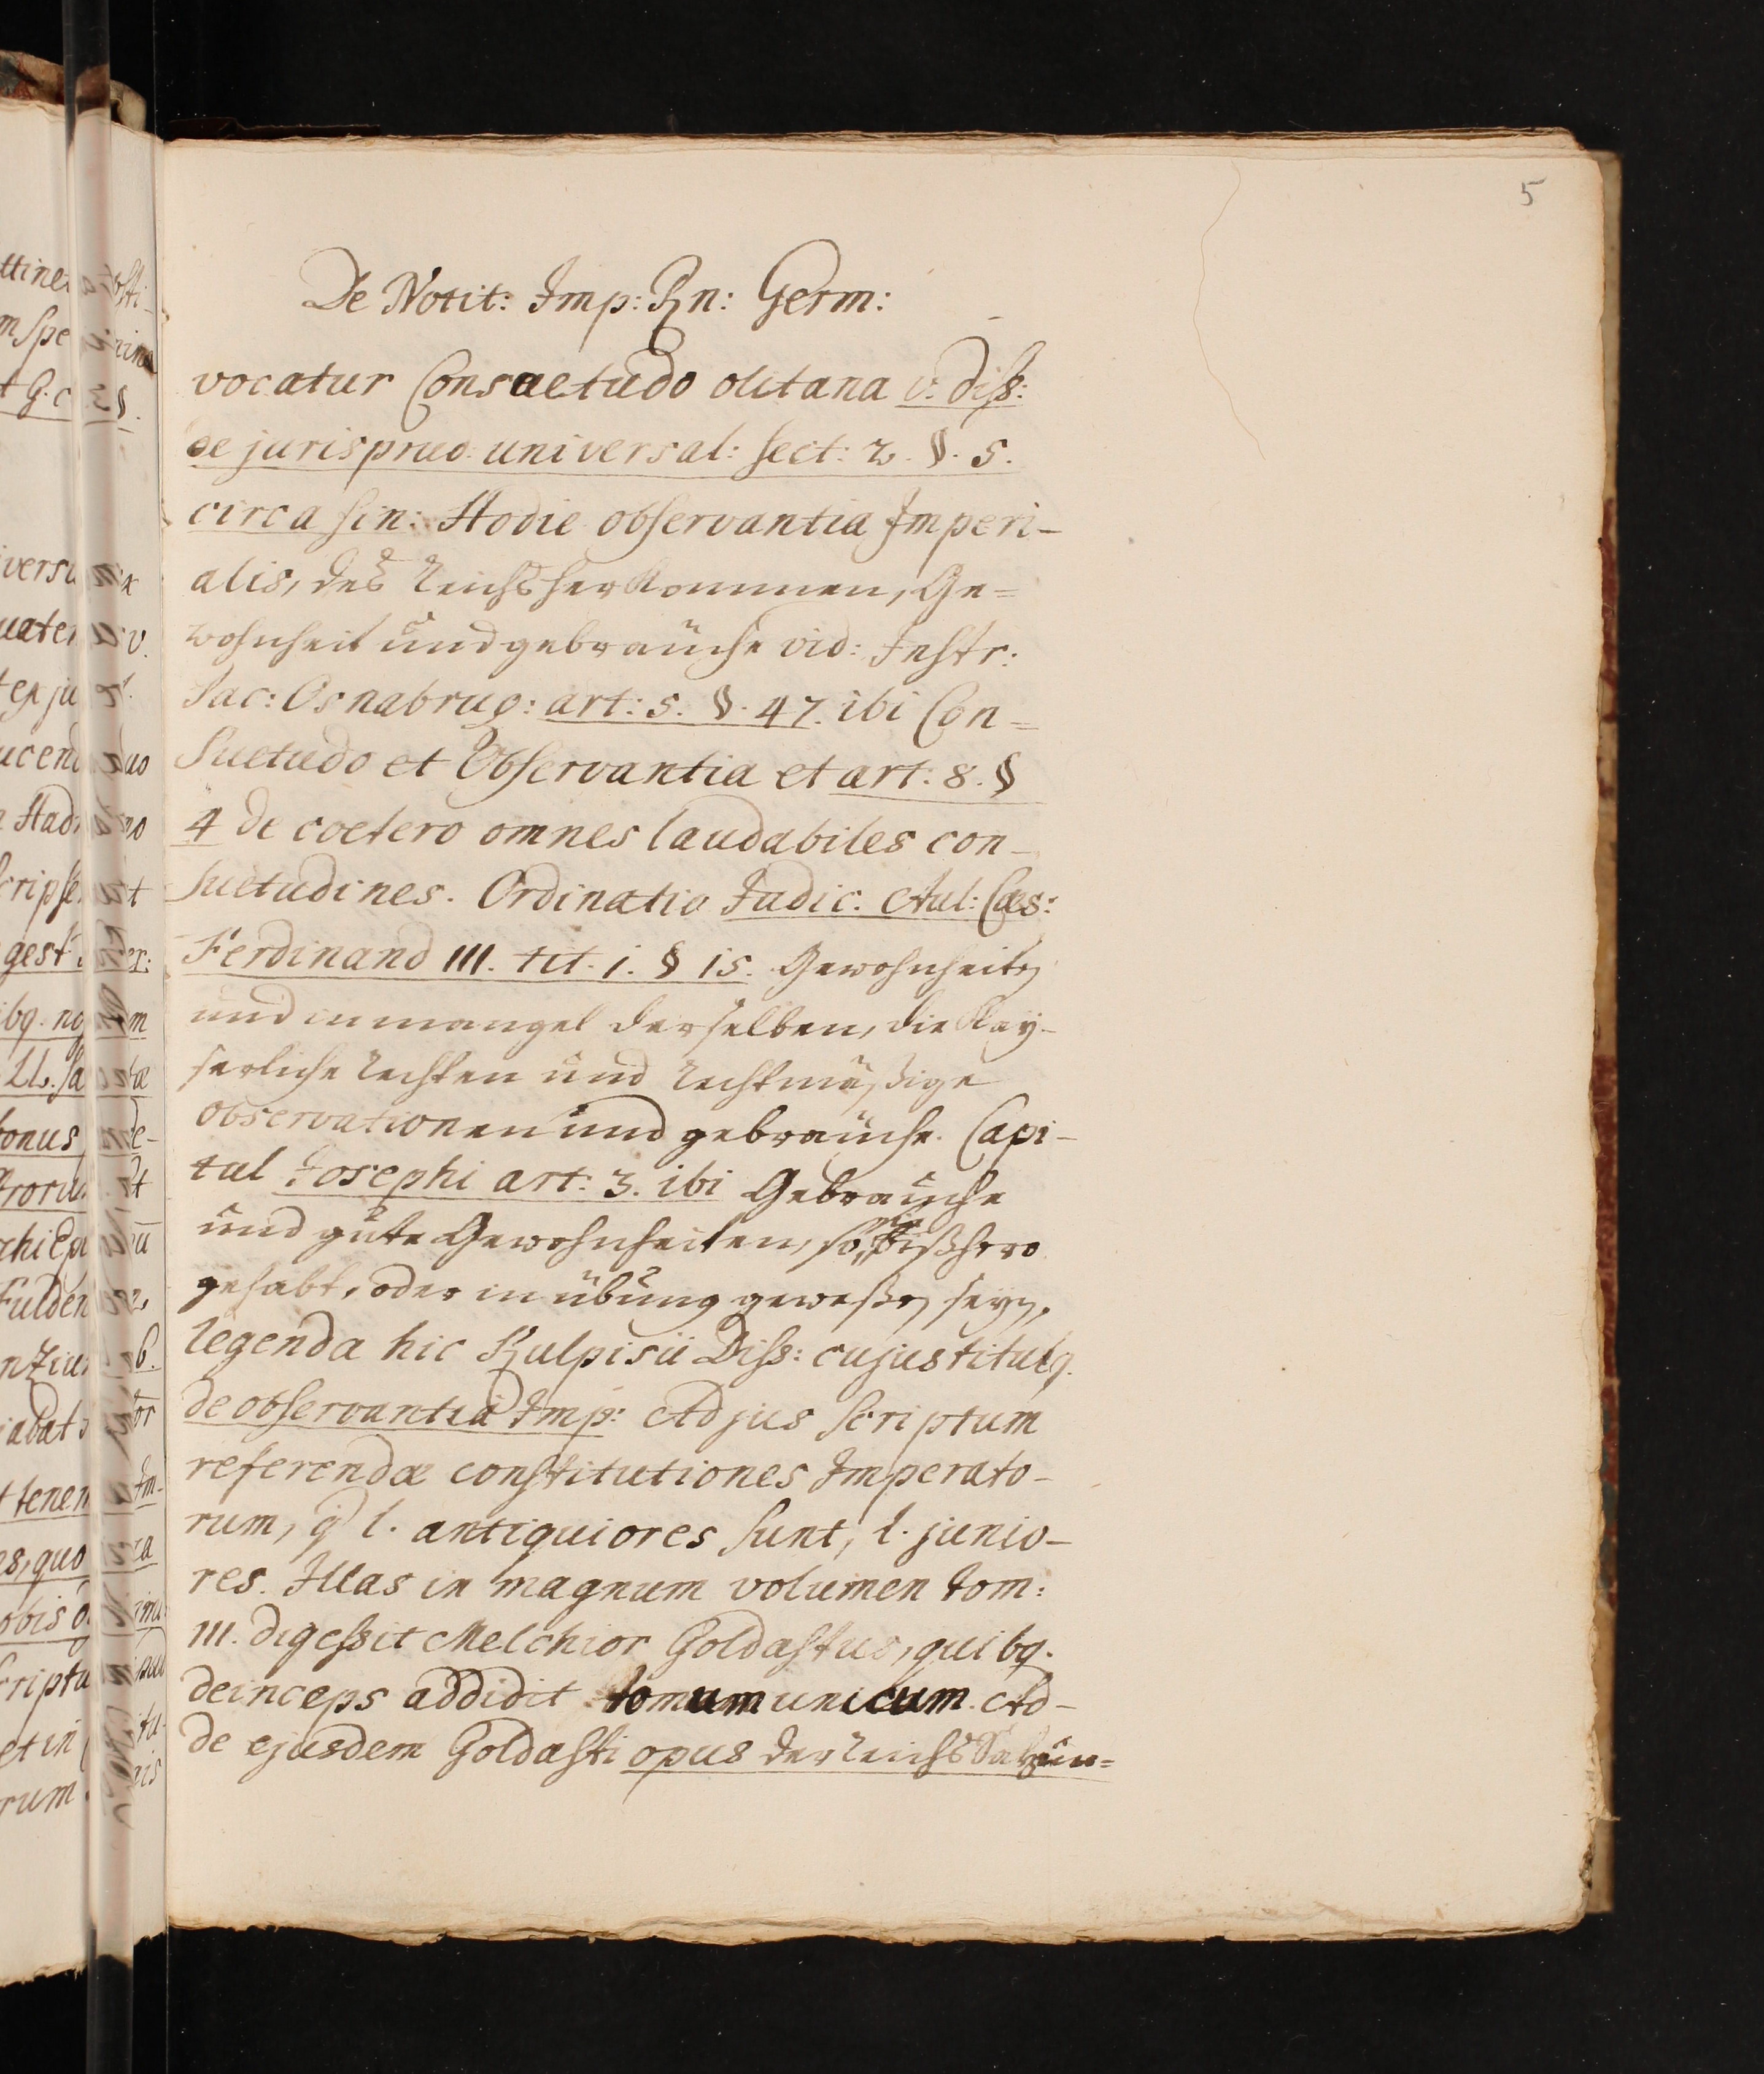 5
De Notit: Imp: Rn: Germ:
vocatur Consuetudo olitana v. diss:
de jurisprud. universal: sect: 2. §. 5.
circa fin: Hodie observantia Imperi-
alis, des Reichsherkommen, Ge=
wohnheit und gebräuche vid: Instr:
Pac: Osnabrug: art: 5. §. 47. ibi Con=
suetudo et Observantia et art. 8. §
4 de coetero omnes laudabiles con-
suetudines. Ordinatio Judic. Aul: Caes:
Ferdinand III. tit. 1. § 15. Gewohnheiten
und in mangel derselben, die Kay-
serliche Rechten und Rechtmäßige
observationen und gebräuche. Capi-
tul Josephi art: 3. ibi Gebräuche
und gute Gewohnheiten, so bißhero
gehabt, oder in übung geweßen seyn.
legenda hic Kulpisii Diss: cujus titulq.
de observantia Imp: Ad jus scriptum
referendæ constitutiones Imperato-
rum, q l. antiquiores sunt, l. junio-
res. Illas in magnum volumen tom:
III. digessit Melchior Goldastus, quibq.
deinceps addidit tomum unicum. Ad-
de ejusdem Goldasti opus der Reichs Satzun=